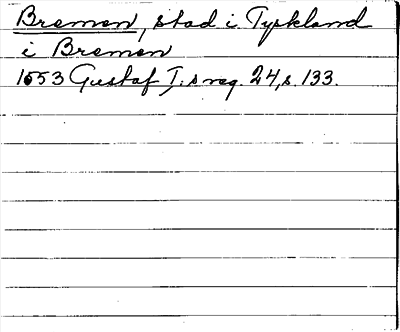 Bremen, stad i Tyskland
i Bremen
1553 Gustaf I:s reg. 24, s. 133.